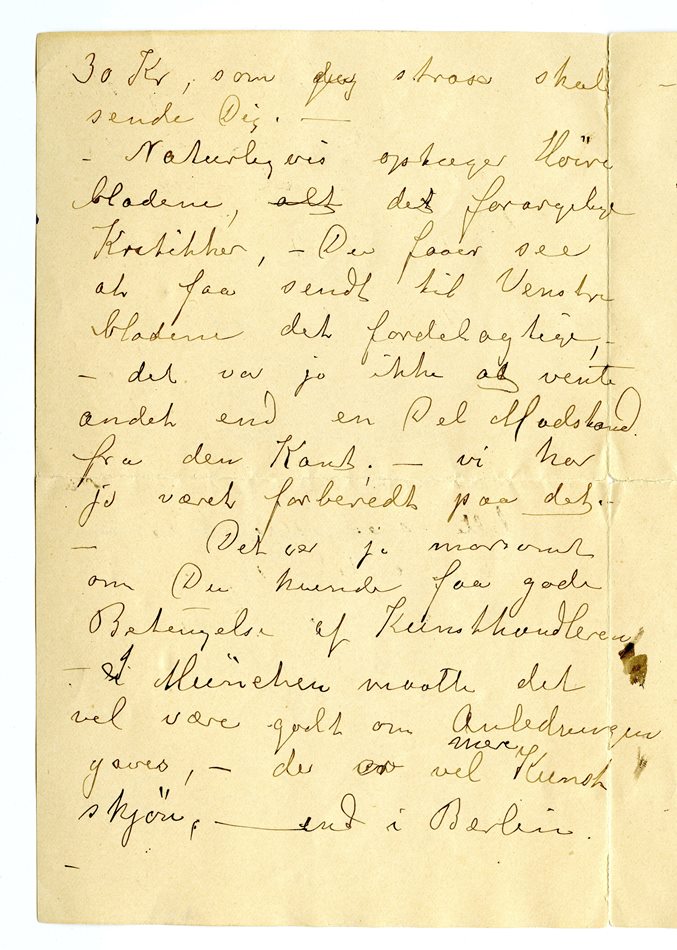 30 Kr, som jeg strax skal –
sende Dig. –
– Naturligvis optager Höire
bladene, alt det forargelige
Kritikker, – Du faaer see
at faa sendt til Venstre
bladene det fordelagtige, –
– det var jo ikke at vente
andet end en Del Modstand
fra den Kant, – vi har
jo været forberedt paa det. –
– Det er jo morsomt
om Du kunde faa gode
Betingelse af Kunsthandleren
– i München maatte det
vel være godt om Anledningen
gaves, – der er vel mere Kunst
skjön, – end i Berlin.
–